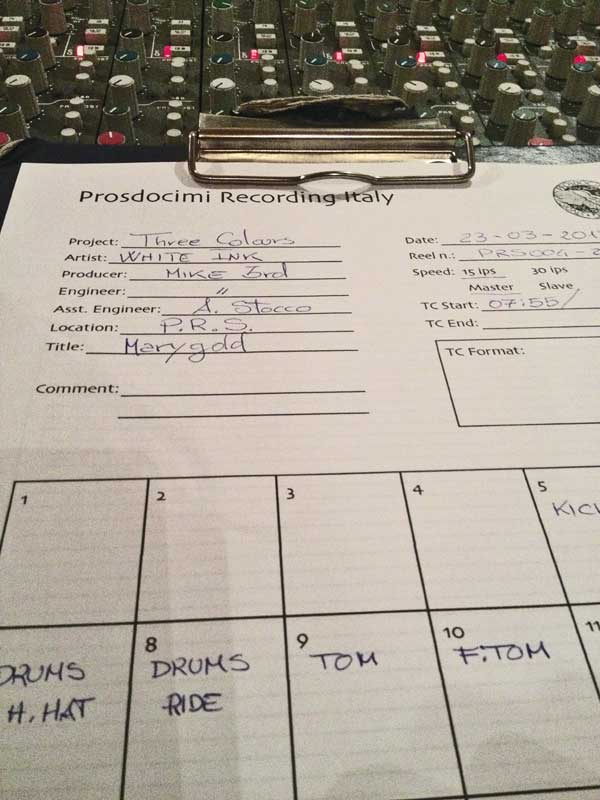 Prosdocimi Recording Italy
Project: Three Colours
Artist: WHITE INK
Producer: MIKE 3rd
Engineer: "
Asst. Engineer: A. Stocco
Location: P.R.S.
Title: Marygold
Comment:
Date: 23-03-201
Reel n.: PRS004-2
Speed: 15 ips 30 ips
Master Slave
TC Start: 07:55/
TC End:
TC Format:
1 2 3 4 5
KICK
8 9 10 11
DRUMS DRUMS TOM F.TOM
H.HAT RIDE